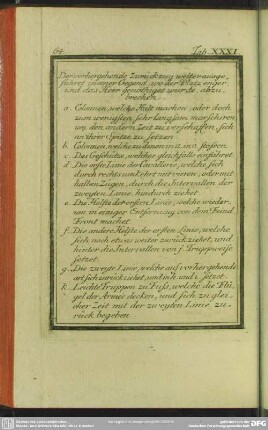 64 Tab. XXXI
Der vorhergehende Zurückzug weiter ausge-
führet in einer Gegend wo der Platz enger
und das Heer genöthiget wurde, abzu
brechen.
a. Colonnen, welche Halt machen oder doch
zum wenigsten sehr langsam marschiren
um den andern Zeit zu verschaffen, sich
an ihrer Spitze zu setzen
b. Colonnen, welche zu denen in a. a. a stossen
c. Das Geschütze, welches gleichfalls auffahrt
d. Die erste Linie der Cavallerie, welche sich
durch rechts um kehrt mit vieren, oder mit
halben Zügen, durch die Intervallen der
zweyten Linie hindurch ziehet
e. Die Hälfte der ersten Linie, welche wieder-
um in einiger Entfernung von dem Feind
Front machet
f. Die andere Hälfte der ersten Linie, welche
sich noch etwas weiter zurück ziehet, und
hinter die Intervallen von f Truppweise
setzet
g. Die zweyte Linie, welche auf vorhergehende
art sich zurück ziehet, um h und i. setzet
k. Leichte Truppen zu Fuss, welche die Flü-
gel der Armee decken, und sich zu glei-
cher Zeit mit der zweyten Linie zu-
rück begeben